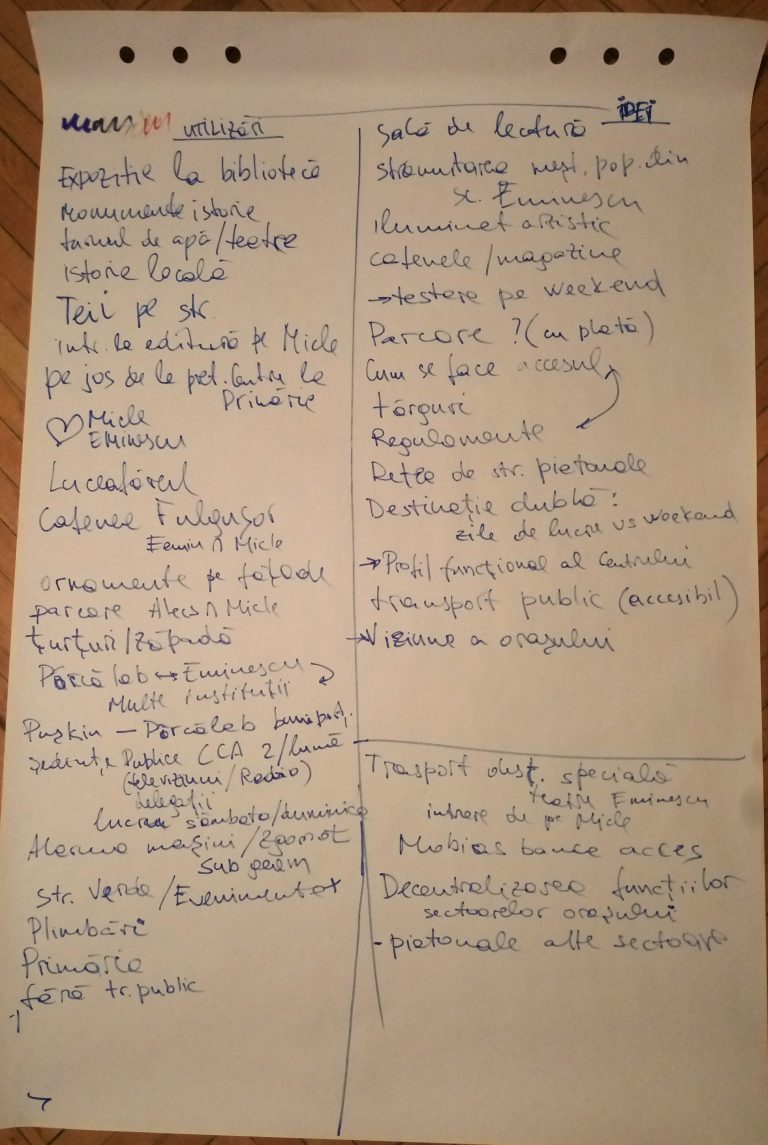 UTILIZĂRI
Expoziție la bibliotecă
Monumente istorie
turnul de apă/teatre
istorie locală
Teii pe str.
intr. la editură pe Micle
pe jos de la piet. Centru la
Primărie
Micle
EMinescu
Luceafărul
Cafenea Fulgușor
Emin ∩ Micle
ornamente pe fațade
parcare Alecs ∩ Micle
țurțuri/zăpadă
Pârcălab ↔ Eminescu
Multe instituții
Pușkin – Pârcălab
ședințe Publice CCA 2/lună
(televiziuni/Radio)
delegații
lucrau sâmbăta/duminica
Alarma mașini/Zgomot
sub geam
str. Verde/Eveniment
Plimbări
Primăria
fără tr. public
IDEI
Sală de lectură
strămutarea meșt. pop. din
sc. Eminescu
iluminat artistic
cafenele/magazine
→ testare pe weekend
Parcare? (cu plată)
Cum se face accesul
târguri
Regulamente
Rețea de str. pietonale
Destinație dublă:
zile de lucru vs weekend
→ Profil funcțional al Centrului
transport public (accesibil)
→ Viziune a orașului
Trasport dest. specială
teatru Eminescu
intrare de pe Micle
Mobias banca acces
Decentralizarea funcțiilor
sectoarelor orașului
- pietonale alte sectoare